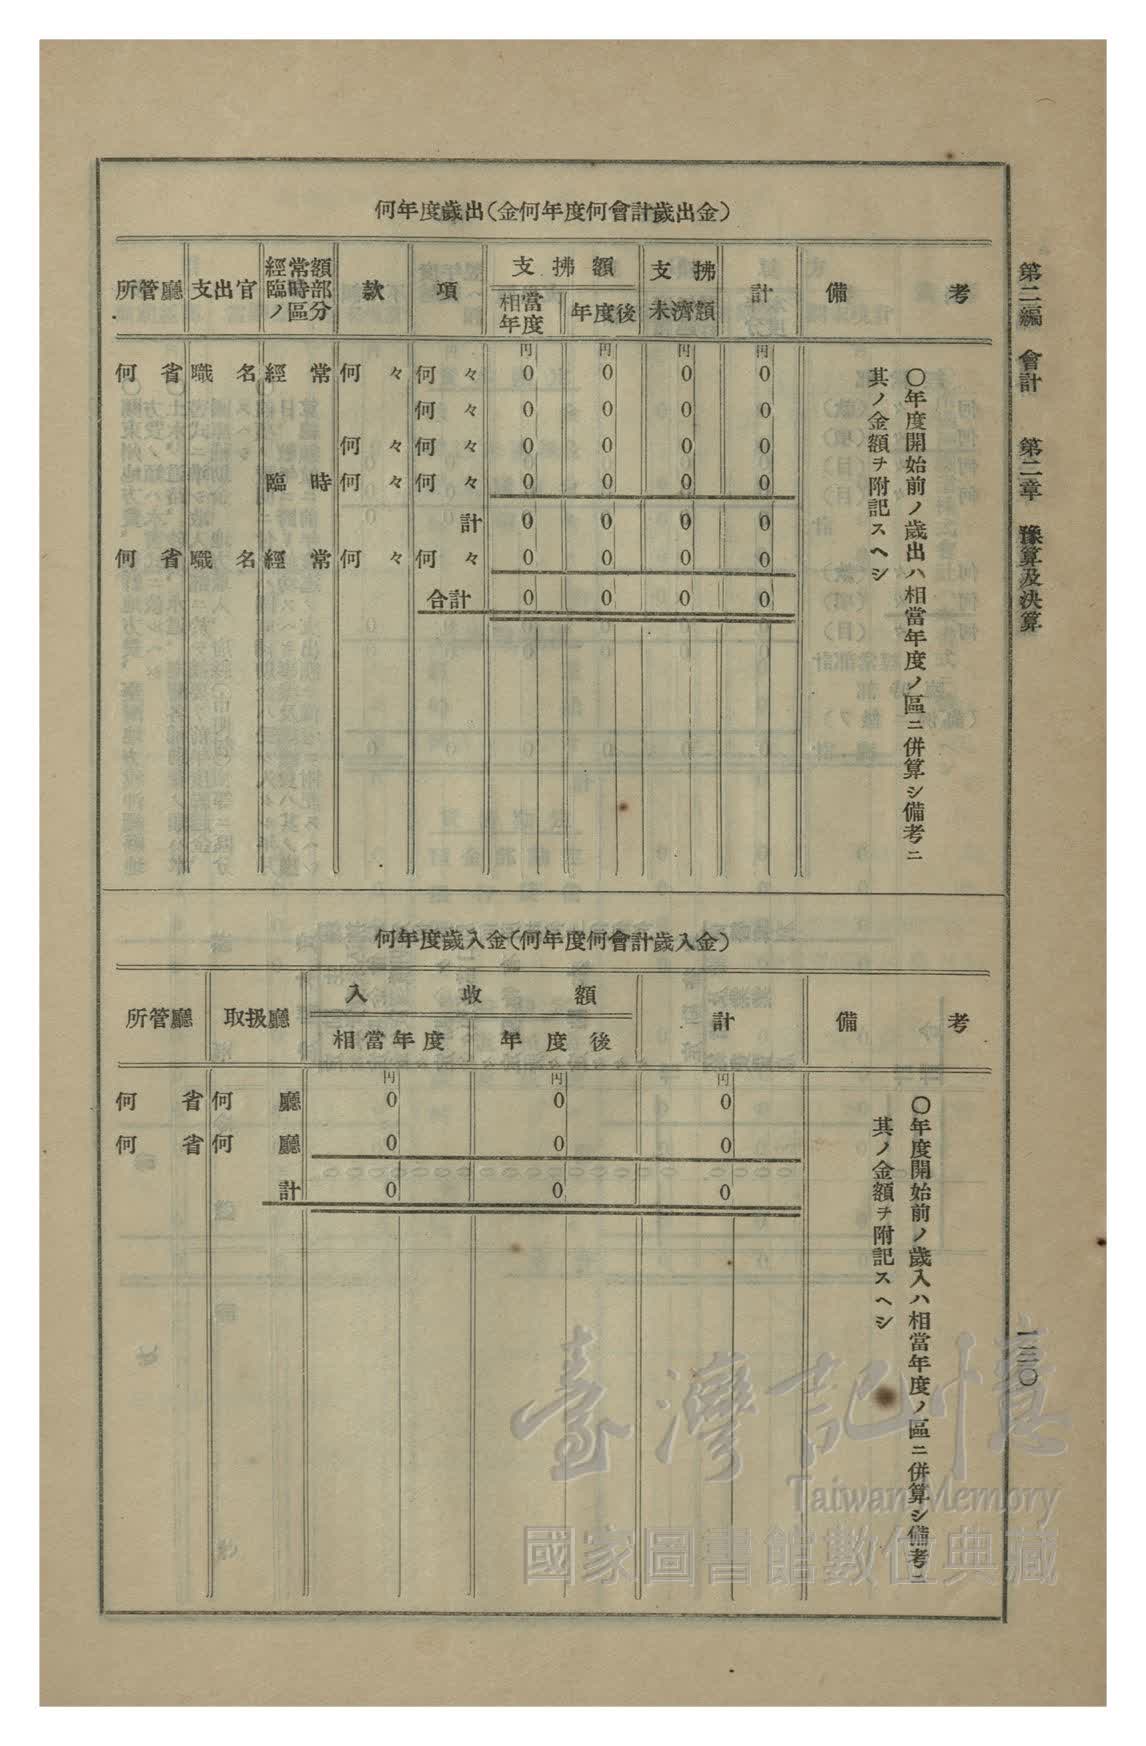 第二編　會計　　第二章　豫算及決算
一三〇
何年度歲出(金何年度何會計歲出金)
所管廳　支出官　經常額臨時部ノ區分　款　項　支拂額　支拂未濟額　計　備考
相當年度　年度後
円　円　円　円
何省　職名　經常　何々　何々　0　0　0　0
何々　0　0　0　0
何々　何々　0　0　0　0
臨時　何々　何々　0　0　0　0
計　0　0　0　0
何省　職名　經常　何々　何々　0　0　0　0
合計　0　0　0　0
〇年度開始前ノ歲出ハ相當年度ノ區ニ併算シ備考ニ
其ノ金額ヲ附記スヘシ
何年度歲入金(何年度何會計歲入金)
所管廳　取扱廳　入收額　計　備考
相當年度　年度後
円　円　円
何省　何廳　0　0　0
何省　何廳　0　0　0
計　0　0　0
〇年度開始前ノ歲入ハ相當年度ノ區ニ併算シ備考ニ
其ノ金額ヲ附記スヘシ
臺灣記憶
Taiwan Memory
國家圖書館數位典藏